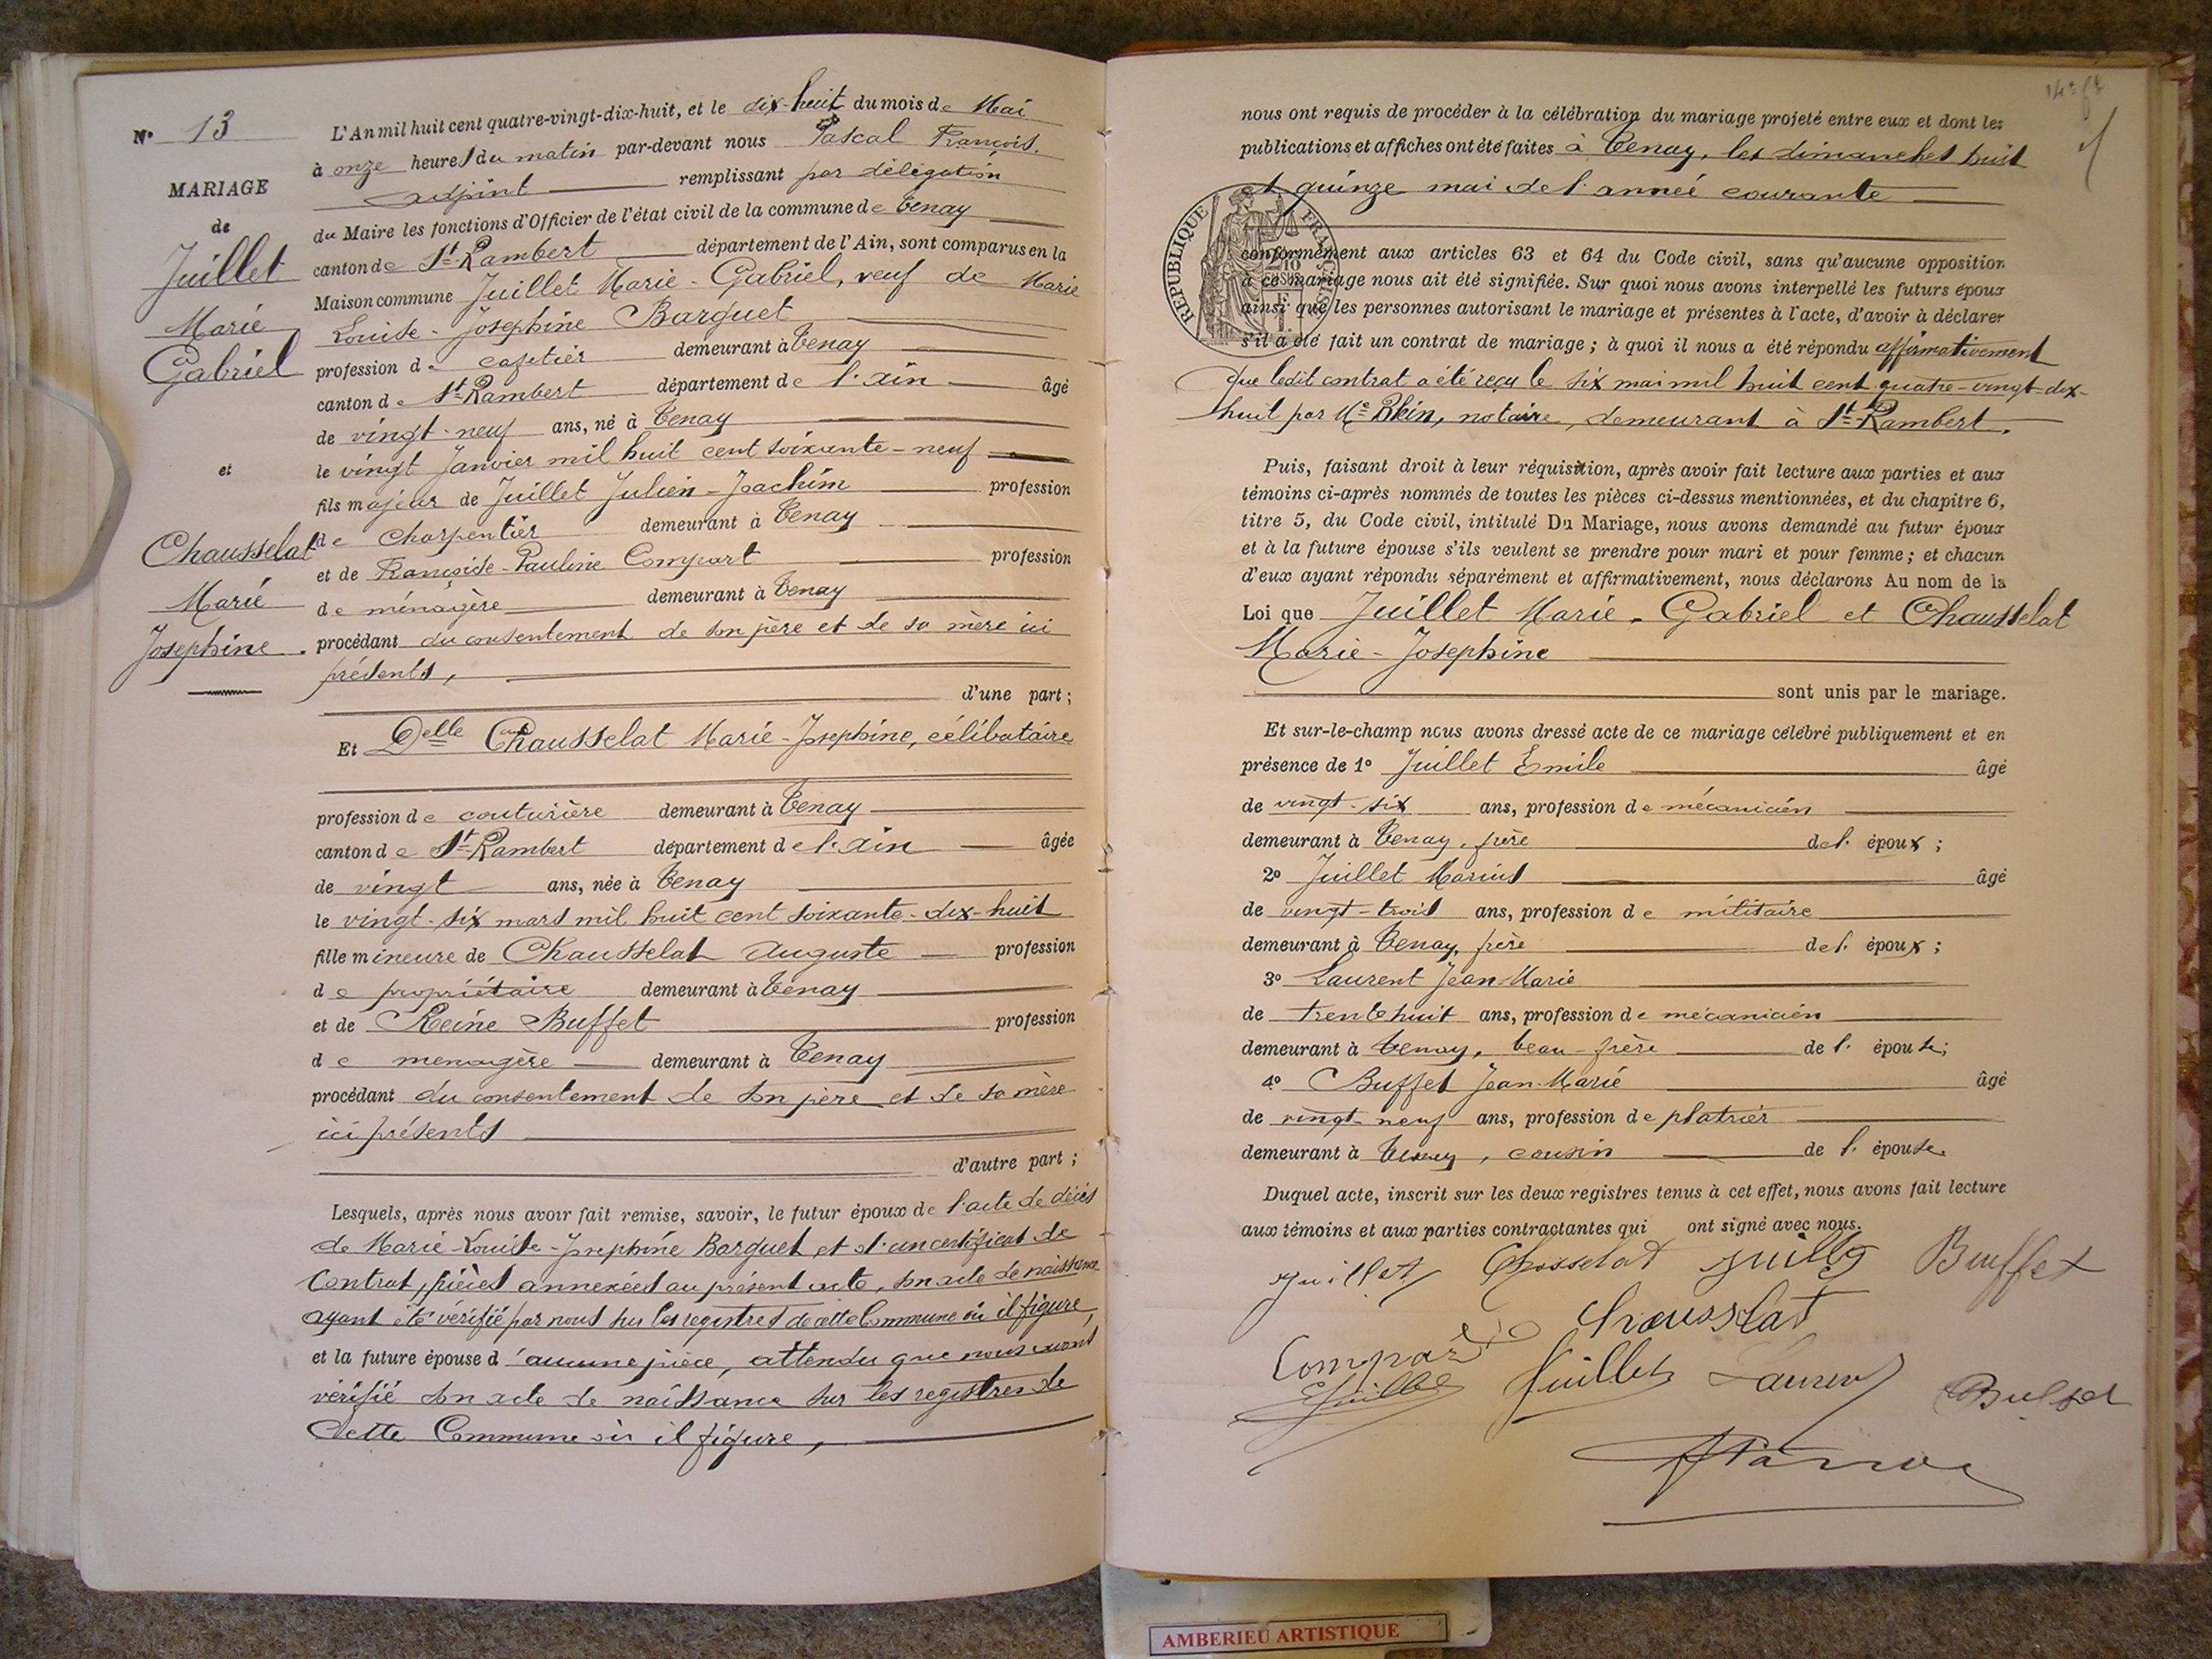 N° 13
MARIAGE
de
Juillet
Marie
Gabriel
et
Chausselat
Marie
Josephine.
L'An mil huit cent quatre-vingt-dix-huit, et le dix-huit du mois de Mai
à onze heures du matin par-devant nous Pascal François,
adjoint remplissant par délégation
du Maire les fonctions d'Officier de l'état civil de la commune de Tenay
canton de St Rambert département de l'Ain, sont comparus en la
Maison commune Juillet Marie-Gabriel, veuf de Marie
Louise-Josephine Barquet
profession de cafetier demeurant à Tenay
canton de St Rambert département de l'ain âgé
de vingt-neuf ans, né à Tenay
le vingt Janvier mil huit cent soixante-neuf
fils majeur de Juillet Julien-Joachim profession
de charpentier demeurant à Tenay
et de Françoise-Pauline Compart profession
de ménagère demeurant à Tenay
procédant du consentement de son père et de sa mère ici
présents,
d'une part;
Et Delle Chausselat Marie-Josephine, célibataire
profession de couturière demeurant à Tenay
canton de St Rambert département de l'ain âgée
de vingt ans, née à Tenay
le vingt-six mars mil huit cent soixante-dix-huit
fille mineure de Chausselat Auguste profession
de propriétaire demeurant à Tenay
et de Reine Buffet profession
de menagère demeurant à Tenay
procédant du consentement de son père et de sa mère
ici présents
d'autre part;
Lesquels, après nous avoir fait remise, savoir, le futur époux de l'acte de décès
de Marie-Louise-Josephine Barquet et d'un certificat de
Contrat, pièces annexées au présent acte, son acte de naissance
ayant été vérifié par nous sur les registres de cette Commune où il figure,
et la future épouse d'aucune pièce, attendu que nous avons
vérifié son acte de naissance sur les registres de
cette Commune où il figure,
nous ont requis de procéder à la célébration du mariage projeté entre eux et dont les
publications et affiches ont été faites à Tenay, les dimanches huit
et quinze mai de l'année courante
REPUBLIQUE FRANÇAISE
conformément aux articles 63 et 64 du Code civil, sans qu'aucune opposition
à ce mariage nous ait été signifiée. Sur quoi nous avons interpellé les futurs époux
ainsi que les personnes autorisant le mariage et présentes à l'acte, d'avoir à déclarer
s'il a été fait un contrat de mariage; à quoi il nous a été répondu affirmativement
que ledit contrat a été reçu le six mai mil huit cent quatre-vingt-dix-
huit par Me notaire, demeurant à St Rambert.
Puis, faisant droit à leur réquisition, après avoir fait lecture aux parties et aux
témoins ci-après nommés de toutes les pièces ci-dessus mentionnées, et du chapitre 6,
titre 5, du Code civil, intitulé Du Mariage, nous avons demandé au futur époux
et à la future épouse s'ils veulent se prendre pour mari et pour femme; et chacun
d'eux ayant répondu séparément et affirmativement, nous déclarons Au nom de la
Loi que Juillet Marie-Gabriel et Chausselat
Marie-Josephine
sont unis par le mariage.
Et sur-le-champ nous avons dressé acte de ce mariage célébré publiquement et en
présence de 1° Juillet Emile âgé
de vingt-six ans, profession de mécanicien
demeurant à Tenay, frère de l'époux;
2° Juillet Marius âgé
de vingt-trois ans, profession de militaire
demeurant à Tenay, frère de l'époux;
3° Laurent Jean Marie
de trente huit ans, profession de mécanicien
demeurant à Tenay, beau-frère de l'épouse;
4° Buffet Jean-Marie âgé
de vingt-neuf ans, profession de platrier
demeurant à Tenay, cousin de l'épouse.
Duquel acte, inscrit sur les deux registres tenus à cet effet, nous avons fait lecture
aux témoins et aux parties contractantes qui ont signé avec nous.
Juillet Chosselat Juillet Buffet
Chausslat
Compard
Juillet Juillet Laurent Buffet
AMBERIEU ARTISTIQUE